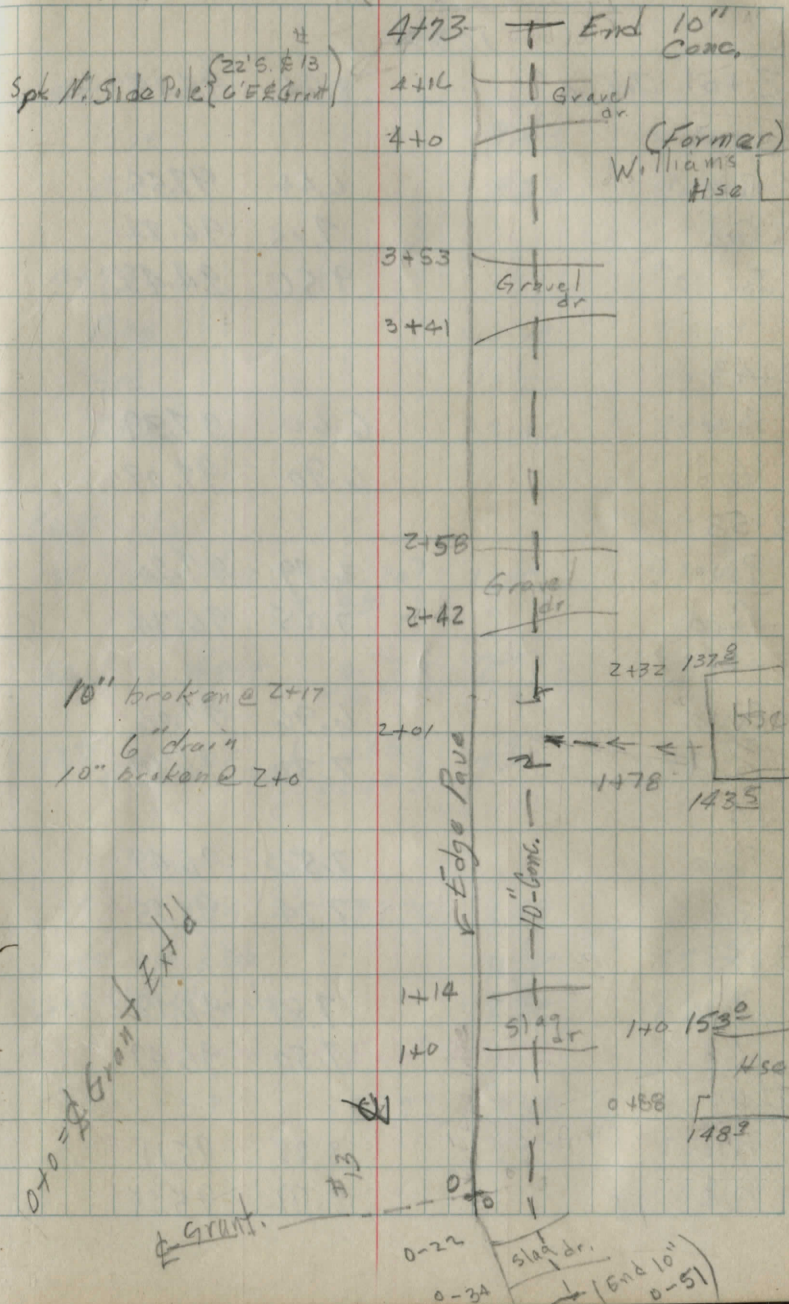 4+73 End 10"
Conc.
Spk N. Side Pole (22' S. ℄ #13
6' E ℄ Grant)
4+16
Gravel
dr.
4+0
(Former)
Williams
Hse
3+53
Gravel
dr
3+41
2+58
Gravel
dr
2+42
2+32 137⁸
Hse
10" broken @ 2+17
2+01
6" drain
10" broken @ 2+0
1+78
143⁵
Edge Pave
10" Conc.
1+14
Slag
dr
1+0
1+0 153⁰
Hse
0+88
148⁹
0+0 = ℄ Grant Ext'd
℄ 13
0
0
℄ Grant.
0-22
Slag dr.
0-34
(End 10"
0-51)